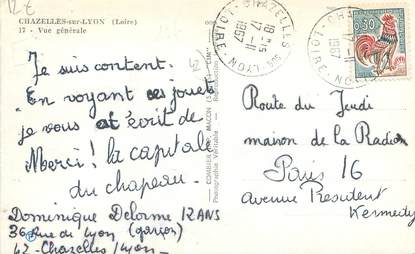 12€
CHAZELLES-sur-LYON (Loire)
17 - Vue générale
Je suis content.
En voyant ces jouets
je vous ai écrit de
Merci! la capitale
du chapeau.
Dominique Delorme 12 ANS
36 Rue de Lyon (garçon)
42-Chazelles/Lyon
COMBIER IMP. MACON
Photographie Véritable
CHAZELLES SUR LYON
LOIRE
18 H 15
17-11
1967
0,30
Route du Jeudi
maison de la Radio
Paris 16
avenue President
Kennedy